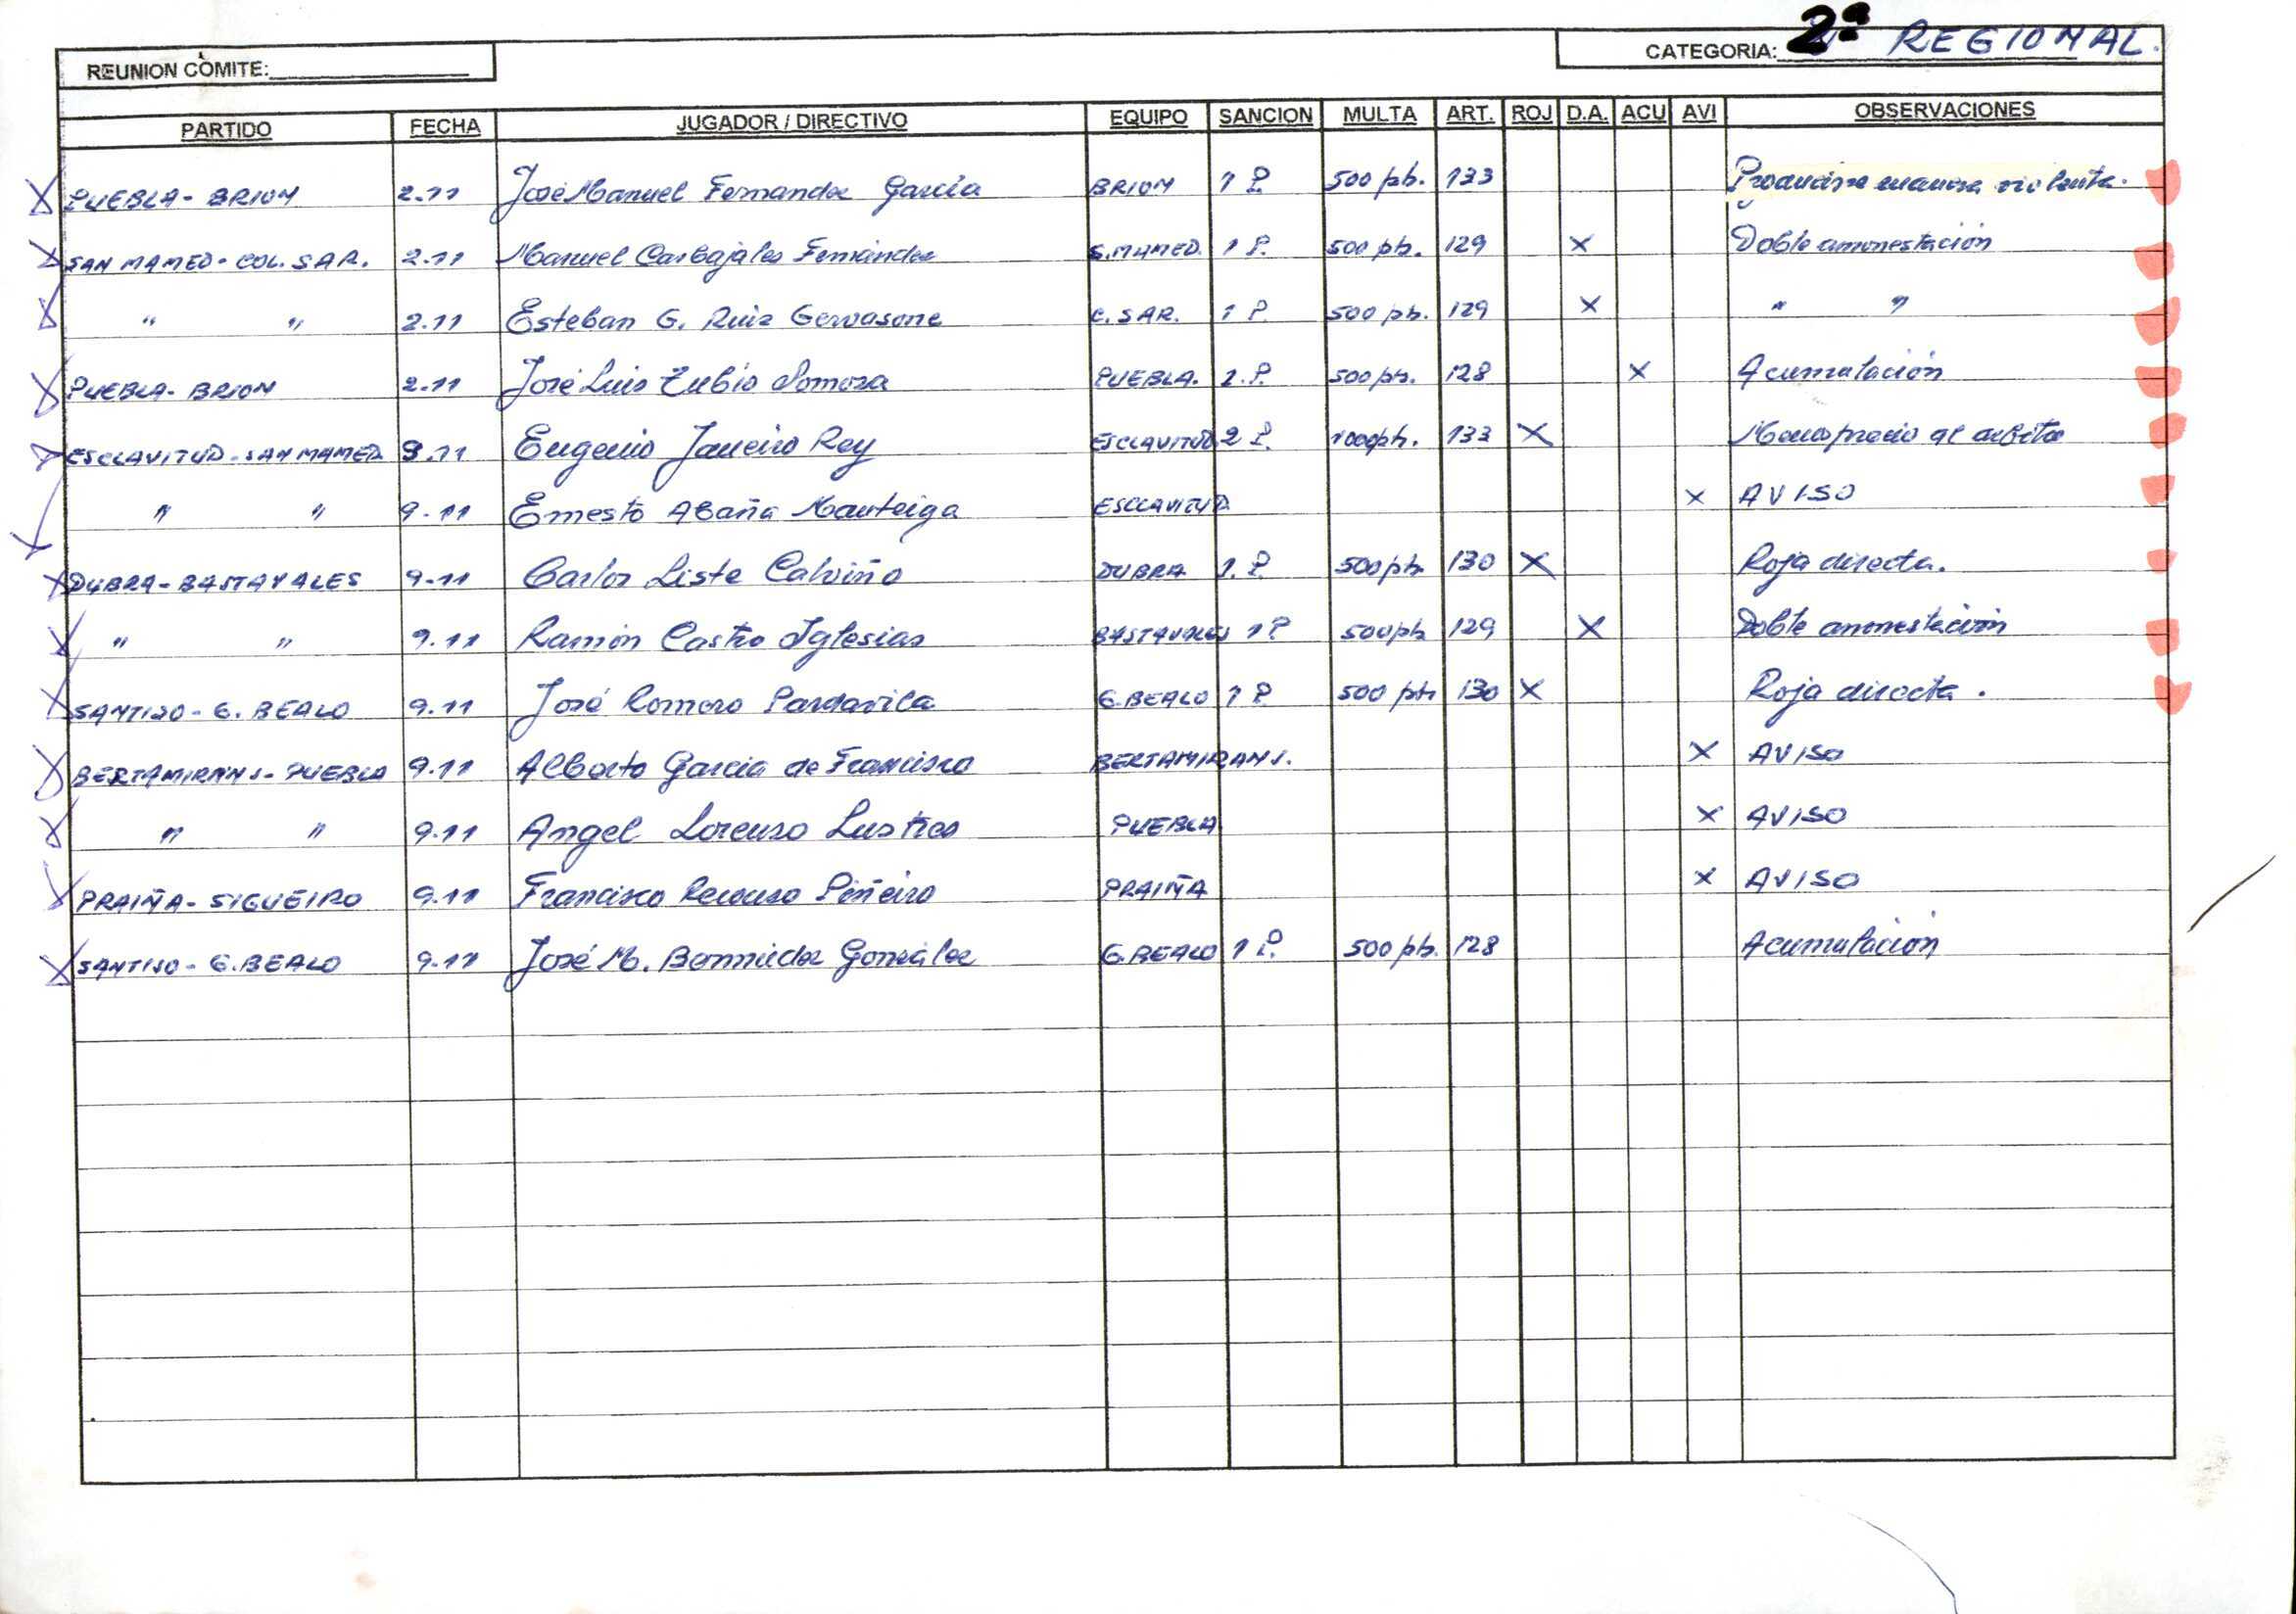 REUNION COMITE: CATEGORIA: 2ª REGIONAL.
PARTIDO FECHA JUGADOR / DIRECTIVO EQUIPO SANCION MULTA ART. ROJ D.A. ACU AVI OBSERVACIONES
X PUEBLA - BRION 2.11 José Manuel Fernandez García BRION 1 P. 500 pts. 133 manera violenta.
X SAN MAMED - COL. SAR. 2.11 Manuel Carbajales Fernández S. MAMED. 1 P. 500 pts. 129 X Doble amonestación
X " " 2.11 Esteban G. Ruiz Gervasone C. SAR. 1 P. 500 pts. 129 X " "
X PUEBLA - BRION 2.11 José Luis Tubío Somoza PUEBLA. 1. P. 500 pts. 128 X Acumulación
X ESCLAVITUD - SAN MAMED 9.11 Eugenio Janeiro Rey ESCLAVITUD 2 P. 1000 pts. 133 X Menosprecio al arbitro
X " " 9.11 Ernesto Abaña Manteiga ESCLAVITUD X AVISO
X DUBRA - BASTAVALES 9.11 Carlos Liste Calviño DUBRA 1. P. 500 pts 130 X Roja directa.
X " " 9.11 Ramón Castro Iglesias BASTAVALES 1 P 500 pts 129 X Doble amonestación
X SANTISO - G. BEALO 9.11 José Romero Pardavila G. BEALO 1 P 500 pts 130 X Roja directa.
X BERTAMIRANS - PUEBLA 9.11 Alberto Garcia de Francisco BERTAMIRANS. X AVISO
X " " 9.11 Angel Lorenzo Lustres PUEBLA X AVISO
X PRAIÑA - SIGUEIRO 9.11 Francisco Recouso Piñeiro PRAIÑA X AVISO
X SANTISO - G. BEALO 9.11 José M. Bermúdez González G. BEALO 1 P. 500 pts. 128 Acumulación